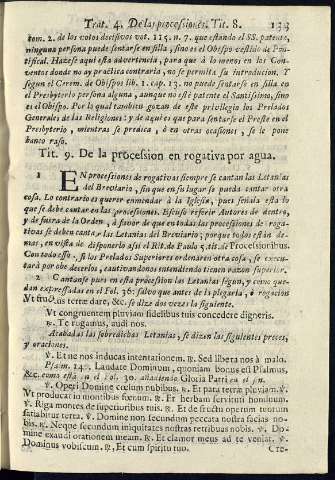 Trat. 4. De las procesiones. Tit. 8. 133
tom. 2. de los votos decisivos vot. 115. n. 7. que estando el SS. patente,
ninguna persona puede sentarse en silla, sino es el Obispo vestido de Pontifical.
Hazese aqui esta advertencia, para que à lo menos en los Conventos
donde no ay practica contraria, no se permita su introducion. Y
segun el Cerem. de Obispos lib. 1. cap. 13. no puede sentarse en silla en
el Presbyterio persona alguna, aunque no estè patente el Santissimo, sino
es el Obispo. Por lo qual tambien gozan de este privilegio los Prelados
Generales de las Religiones: y de aqui es que para sentarse el Preste en el
Presbyterio, mientras se predica, ò en otras ocasiones, se le pone
banco raso.
Tit. 9. De la procession en rogativa por agua.
1 EN processiones de rogativas siempre se cantan las Letanias
del Breviario, sin que en su lugar se pueda cantar otra
cosa. Lo contrario es querer enmendar à la Iglesia, pues señala esta lo
que se debe cantar en las processiones. Escuso referir Autores de dentro,
y de fuera de la Orden, à favor de que en todas las processiones de rogativas
se deben cantar las Letanias del Breviario; porque todos estàn demas,
en vista de disponerlo assi el Rit. de Paulo 5. tit. de Processionibus.
Con todo esso, si los Prelados Superiores ordenaren otra cosa, se executarà
por obedecerlos, cautivandonos entendiendo tienen razon superior.
2 Cantanse pues en esta procession las Letanias segun, y como quedan
expressadas en el Fol. 36: salvo que antes de la plegaria, è rogacion
Vt fructus terræ dare, &c. se dize dos vezes la siguiente.
Vt congruentem pluviam fidelibus tuis concedere digneris.
℟. Te rogamus, audi nos.
Acabadas las sobredichas Letanias, se dizen las siguientes preces,
y oraciones.
℣. Et ne nos inducas in tentationem. ℟. Sed libera nos à malo.
Psalm. 146. Laudate Dominum, quoniam bonus est Psalmus,
&c. como està en el fol. 30. añadiendo Gloria Patri en el fin.
℣. Operi Domine cœlum nubibus. ℟. Et para terræ pluviam. ℣.
Vt producat in montibus fœnum. ℟. Et herbam servituti hominum.
℣. Riga montes de superioribus tuis. ℟. Et de fructu operum tuorum
satiabitur terra. ℣. Domine non secundum peccata nostra facias nobis.
℟. Neque secundum iniquitates nostras retribuas nobis. ℣. Domine
exaudi orationem meam. ℟. Et clamor meus ad te veniat. ℣.
Dominus vobiscum. ℟. Et cum spiritu tuo.